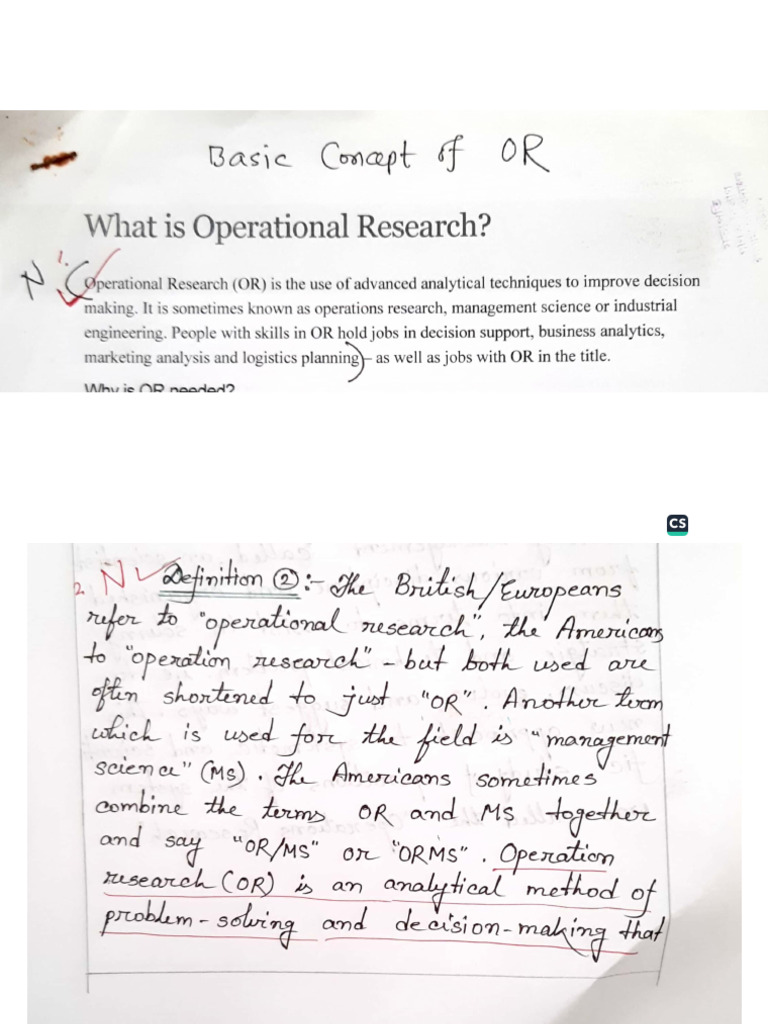 Basic Concept of OR
What is Operational Research?
N 1.
Operational Research (OR) is the use of advanced analytical techniques to improve decision
making. It is sometimes known as operations research, management science or industrial
engineering. People with skills in OR hold jobs in decision support, business analytics,
marketing analysis and logistics planning) – as well as jobs with OR in the title.
Why is OR needed?
CS
2. N Definition ②:- The British/Europeans
refer to "operational research", the Americans
to "operation research" - but both used are
often shortened to just "OR". Another term
which is used for the field is "management
science" (MS). The Americans sometimes
combine the terms OR and MS together
and say "OR/MS" or "ORMS". Operation
research (OR) is an analytical method of
problem-solving and decision-making that